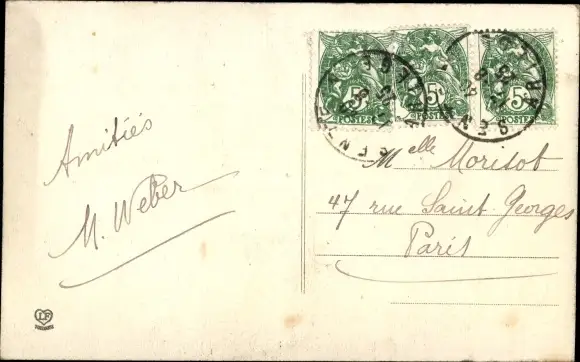 Amitiés
M. Weber
5c 5c 5c
POSTES POSTES POSTES
Melle Morisot
47 rue Saint-Georges
Paris
LF